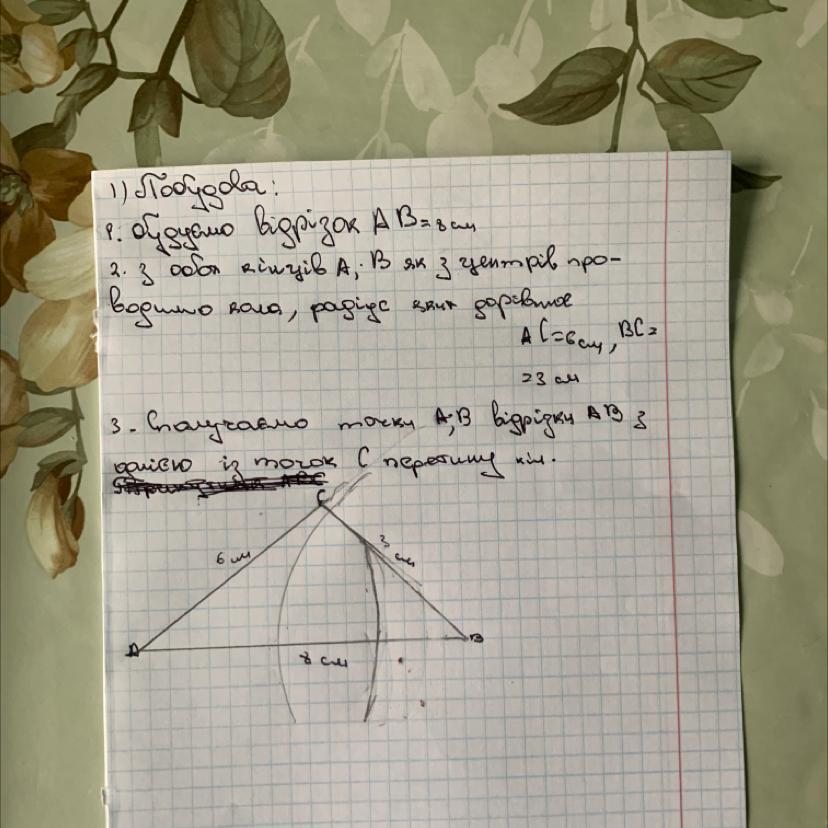 1) Побудова:
1. будуємо відрізок AB=8 см
2. З обох кінців A; B як з центрів про-
водимо кола, радіус яких дорівнює
AC=6см, BC=
=3 см
3. Сполучаємо точки A;B відрізки AB з
однією із точок C перетину кіл.
C
6 см
3 см
A
B
8 см